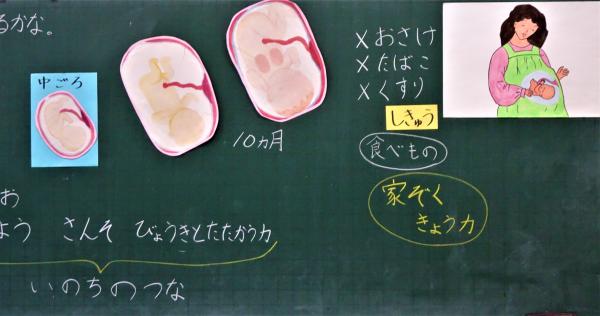 るかな。
中ごろ
10カ月
×おさけ
×たばこ
×くすり
しきゅう
食べもの
家ぞく
きょう力
お
よう さんそ びょうきとたたかう力
いのちのつな